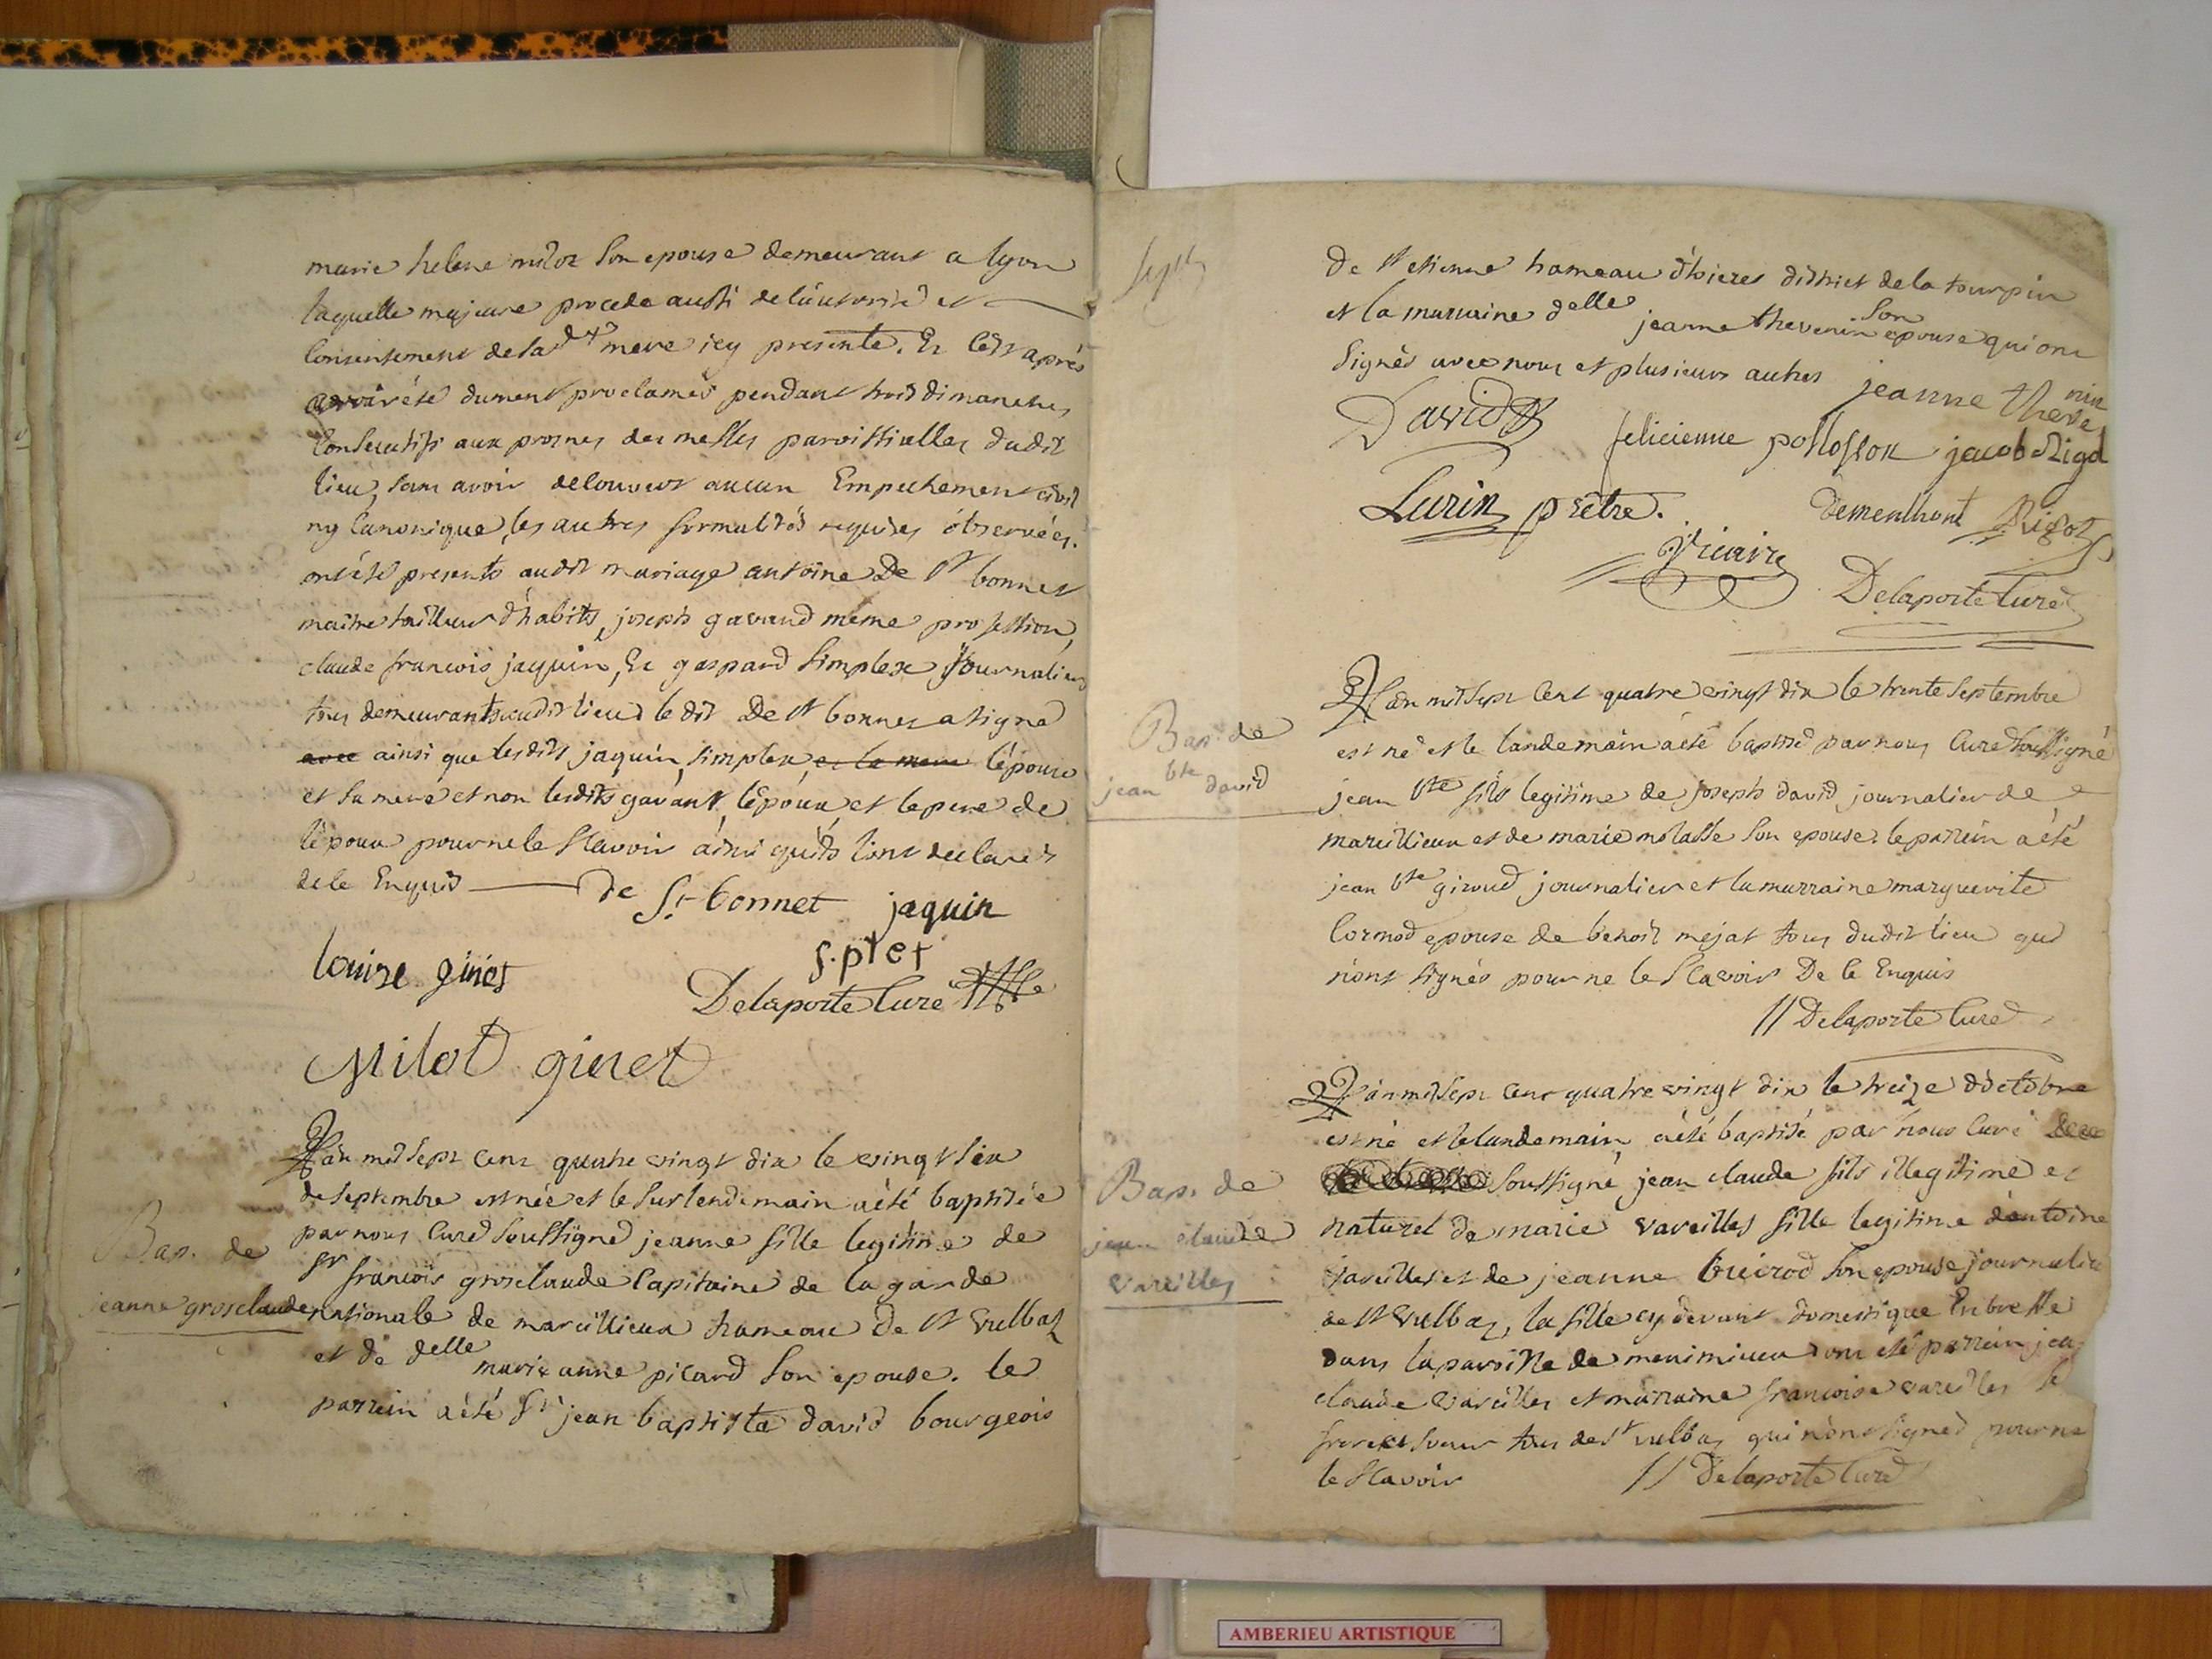 marie helene milot son epouse demeurant a lyon
laquelle majeure procede aussi de l'autorité et
consentement de sad.te mere icy presente. Et ce aprés
avoir été dument proclamés pendant trois dimanches
consecutifs aux prosnes des messes paroissialles dudit
lieu, sans avoir decouvert aucun Empechement civil
ny canonique, les autres formalités requises observées.
ont été presents audit mariage antoine De St bonnet
maitre tailleur d'habits, joseph gavand même profession,
claude francois jaquin, Et gaspard simplex journaliers
tous demeurants audit lieu le dit De st bonnet a signé
avec ainsi que lesdits jaquin, simplex, et la mere l'épouse
et sa mere et non lesdits gavant, l'époux et le pere de
l'époux pour ne le scavoir ainsi qu'ils l'ont declaré
de ce Enquis
de St bonnet jaquin
louise ginet s.plet
Delaporte Curé
Milot ginet
L'an mil sept cent quatre vingt dix le vingt six
de septembre est née et le surlendemain a été baptisée
par nous Curé soussigné jeanne fille legitime de
Bap. de
sr francois grosclaude Capitaine de la garde
jeanne grosclaude
nationale de marcillieux hameau de St Vulbas
et de delle marie anne picard son epouse. le
parrein a été sr jean baptiste david bourgeois
sept
De st etienne hameau d'hieres district de la tourpin
et la marraine delle jeanne thevenin son epouse qui ont
signés avec nous et plusieurs autres jeanne thevenin
David felicienne pollosson jacob Rigd
Lurin prêtre. Dementhont Rigot
Vicaire
Delaporte Curé
L'an mil sept cent quatre vingt dix le trente septembre
Bap. de
est né et le landemain a été baptisé par nous Curé soussigné
jean bte david
jean bte fils legitime de joseph david journalier de
marcillieux et de marie molasse son epouse. le parrein a été
jean bte giroud journalier et la marraine marguerite
Cormod epouse de benoit mejat tous dudit lieu qui
n'ont signés pour ne le scavoir De ce Enquis
Delaporte Curé
L'an mil sept cent quatre vingt dix le treize d'octobre
est né et le landemain, a été baptisé par nous Curé
Bap. de
soussigné jean claude fils illegitime et
jean claude
naturel de marie vareilles fille legitime d'antoine
vareilles
vareilles et de jeanne son epouse journalier
de St Vulbas, la fille cy devant domestique En bresse
dans la paroisse de meximieux ont été parrein jean
claude vareilles et marraine francoise vareilles
frere et soeur tous de st vulbas qui n'ont signés pour ne
le scavoir Delaporte Curé
AMBERIEU ARTISTIQUE